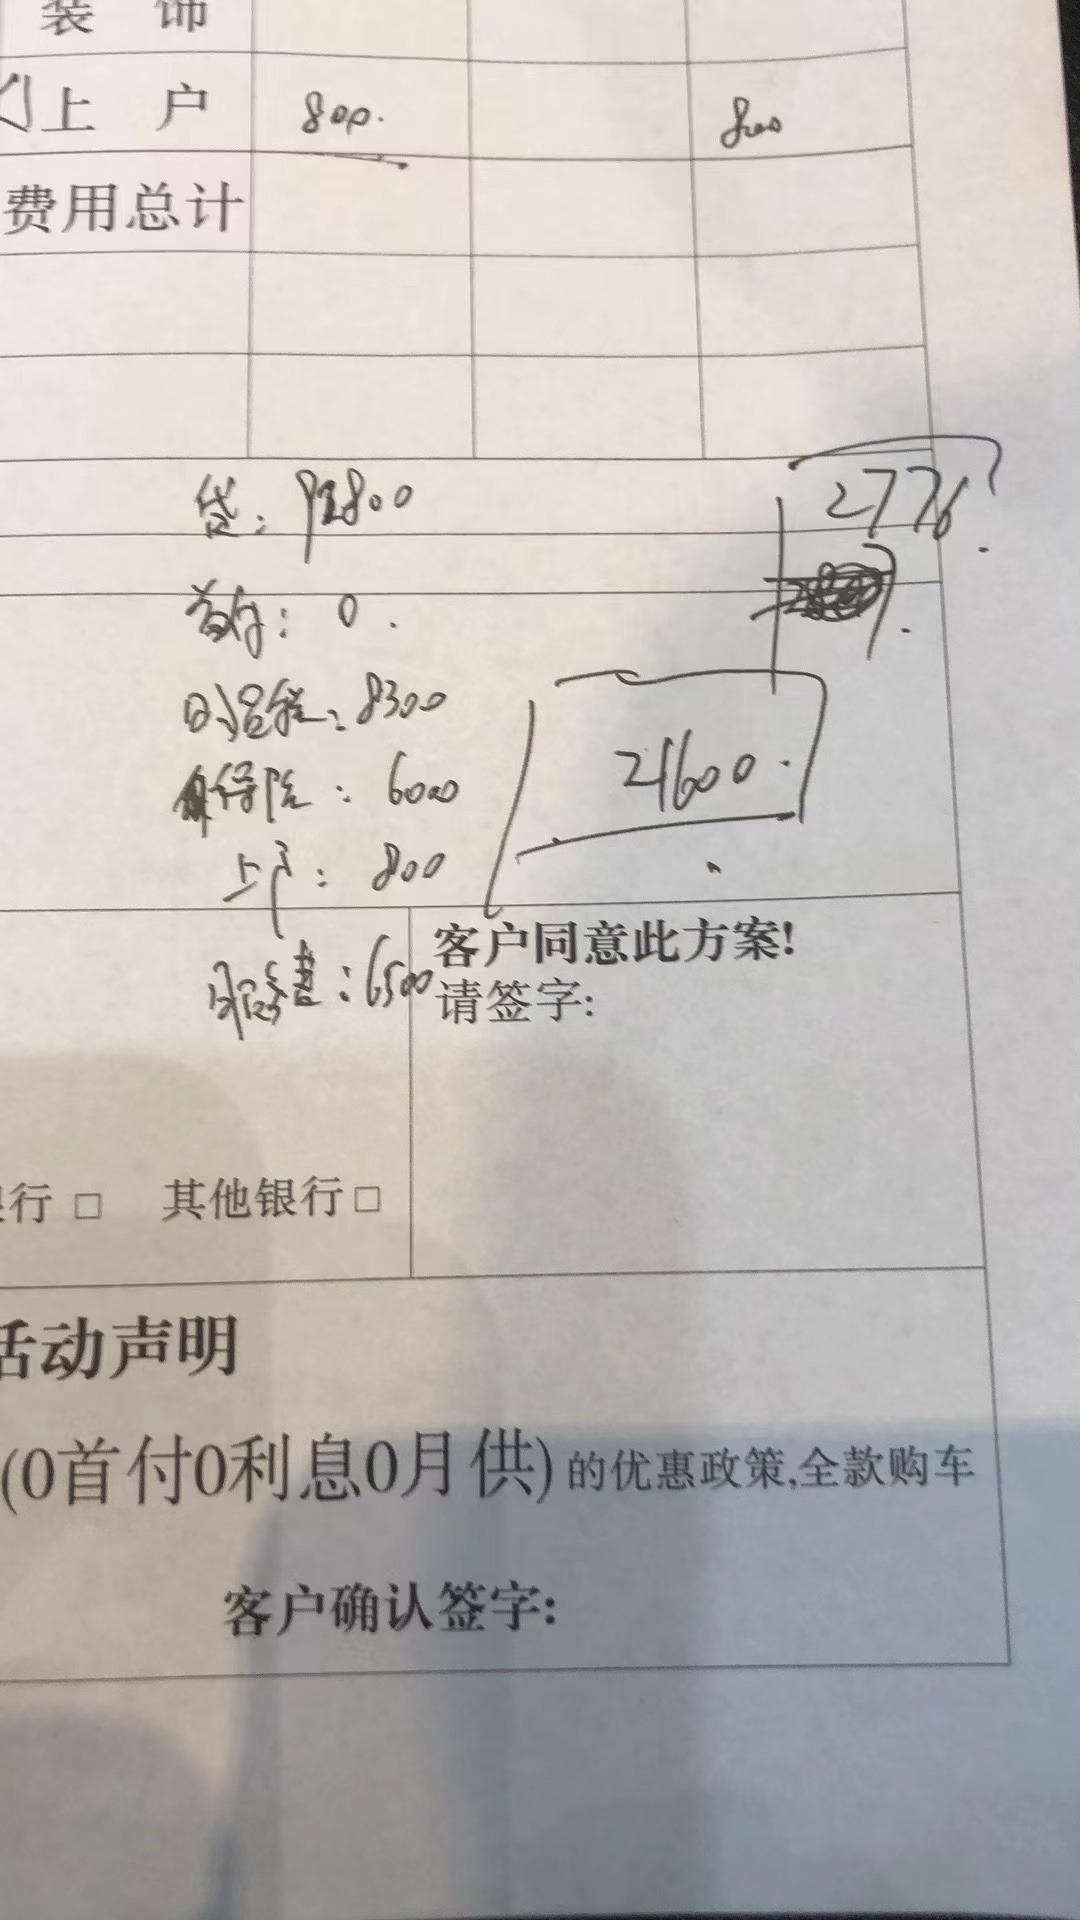 装 饰
上 户 800. 800
费用总计
贷: 92800 2776.
首付: 0.
购置税: 8300
保险: 6000 21600.
上户: 800
服务费: 6500
客户同意此方案!
请签字:
银行 □ 其他银行 □
活动声明
(0首付0利息0月供) 的优惠政策,全款购车
客户确认签字: